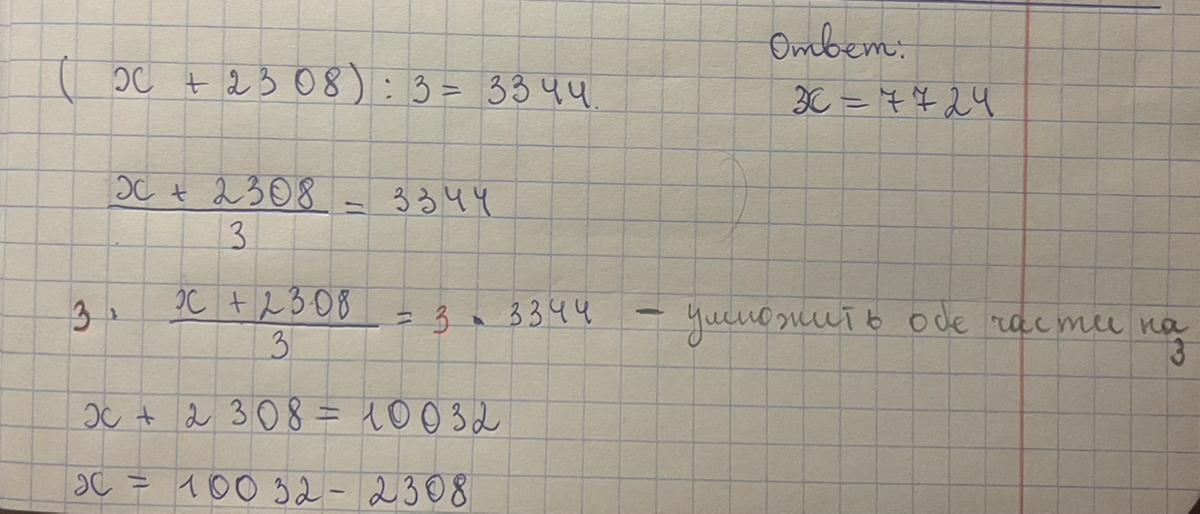 (x + 2308) : 3 = 3344.
Ответ:
x = 7724
x + 2308
3
= 3344
3 · x + 2308
3
= 3 · 3344 – умножить обе части на 3
x + 2308 = 10032
x = 10032 - 2308